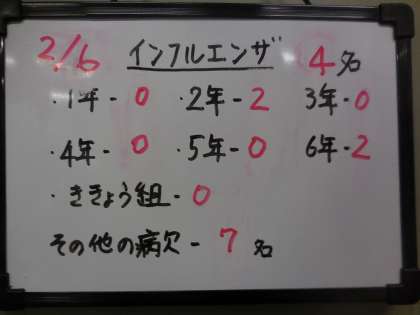 2/6 インフルエンザ 4名
・1年-0 ・2年-2 3年-0
・4年-0 ・5年-0 6年-2
・ききょう組-0
その他の病欠-7名